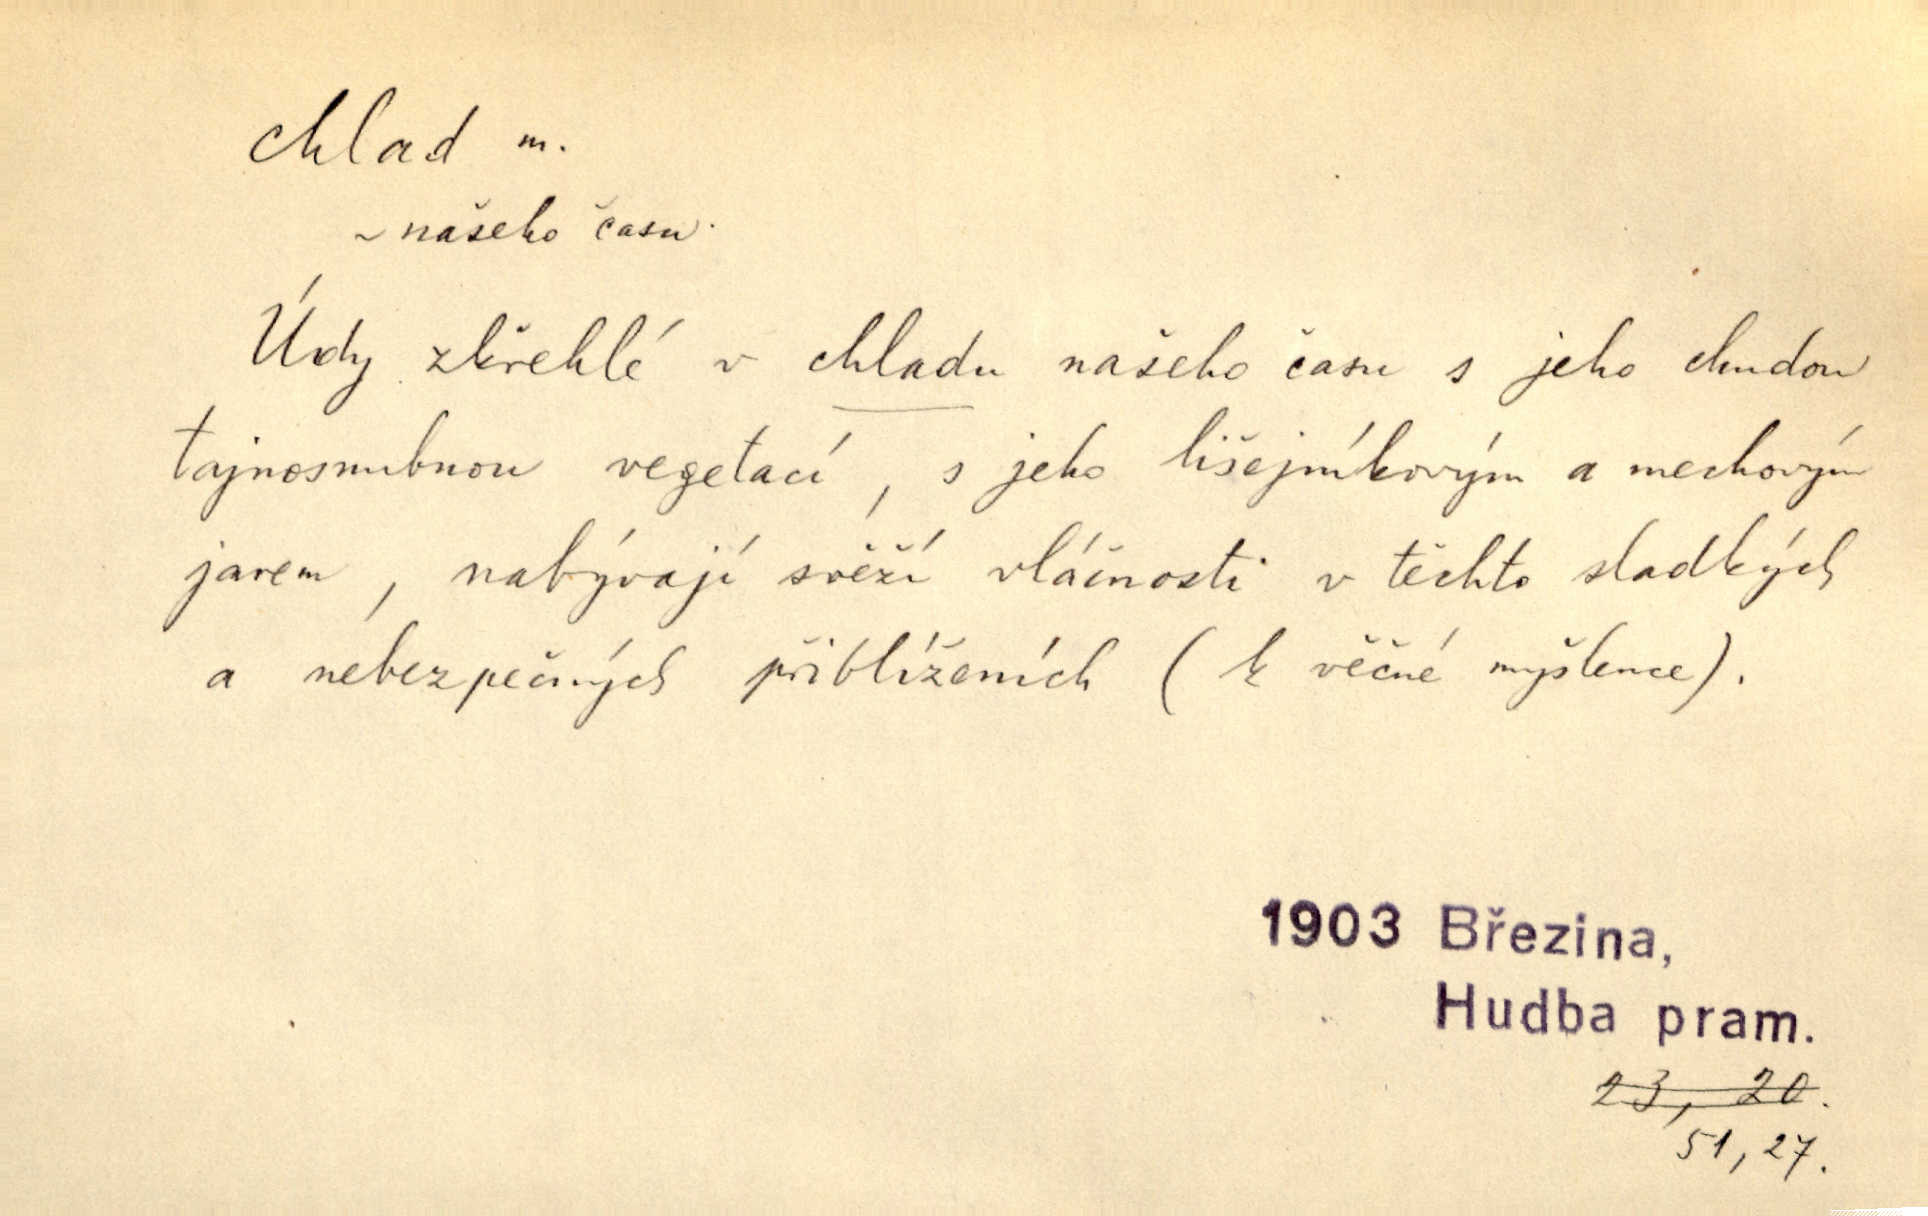 chlad m.
~ našeho času.
Údy zkřehlé v chladu našeho času s jeho chudou
tajnosnubnou vegetací, s jeho lišejníkovým a mechovým
jarem, nabývají svěží vláčnosti v těchto sladkých
a nebezpečných přiblíženích (k věčné myšlence).
1903 Březina,
Hudba pram.
23, 20.
51, 27.